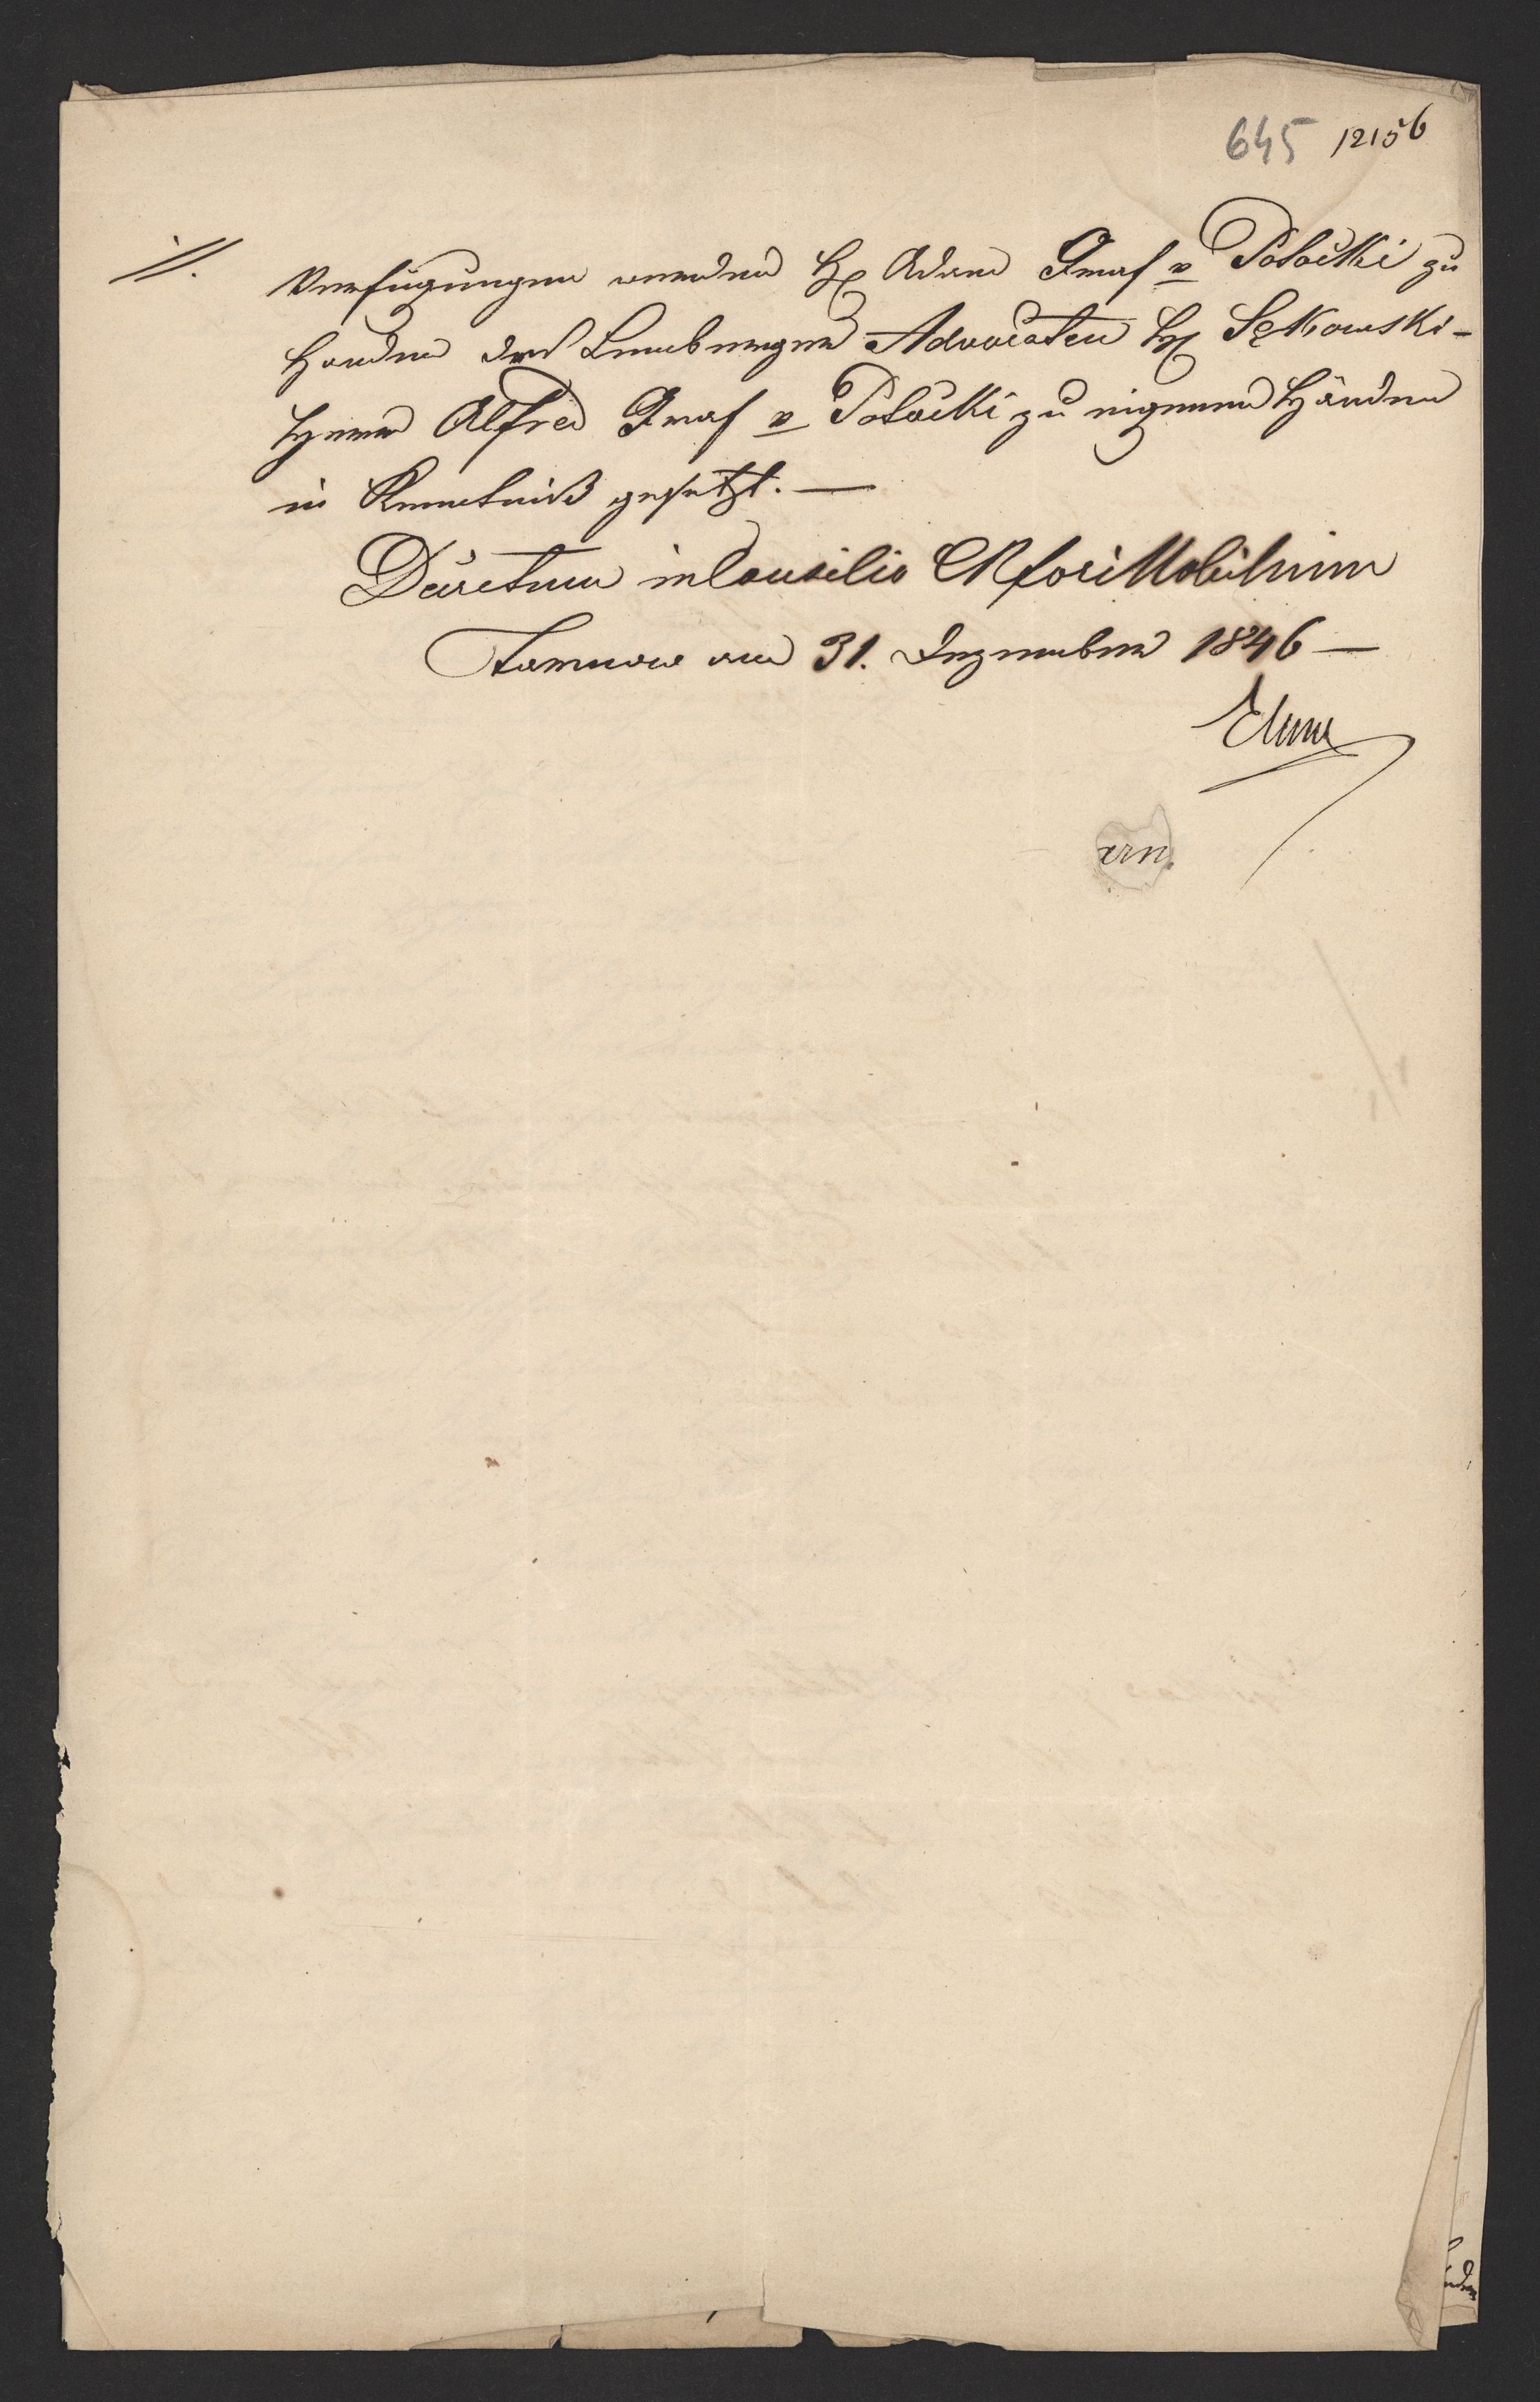 645 12156
·//. Verfügungen werden H. Adam Graf v Potocki zu
Handen des Lemberger Advocaten H. Sękowski -
Herr Alfred Graf v Potocki zu eigenen Händen
in Kenntniß gesetzt. —
Decretum in Consilio CR fori Nobilium
Tarnow am 31. Dezember 1846 —